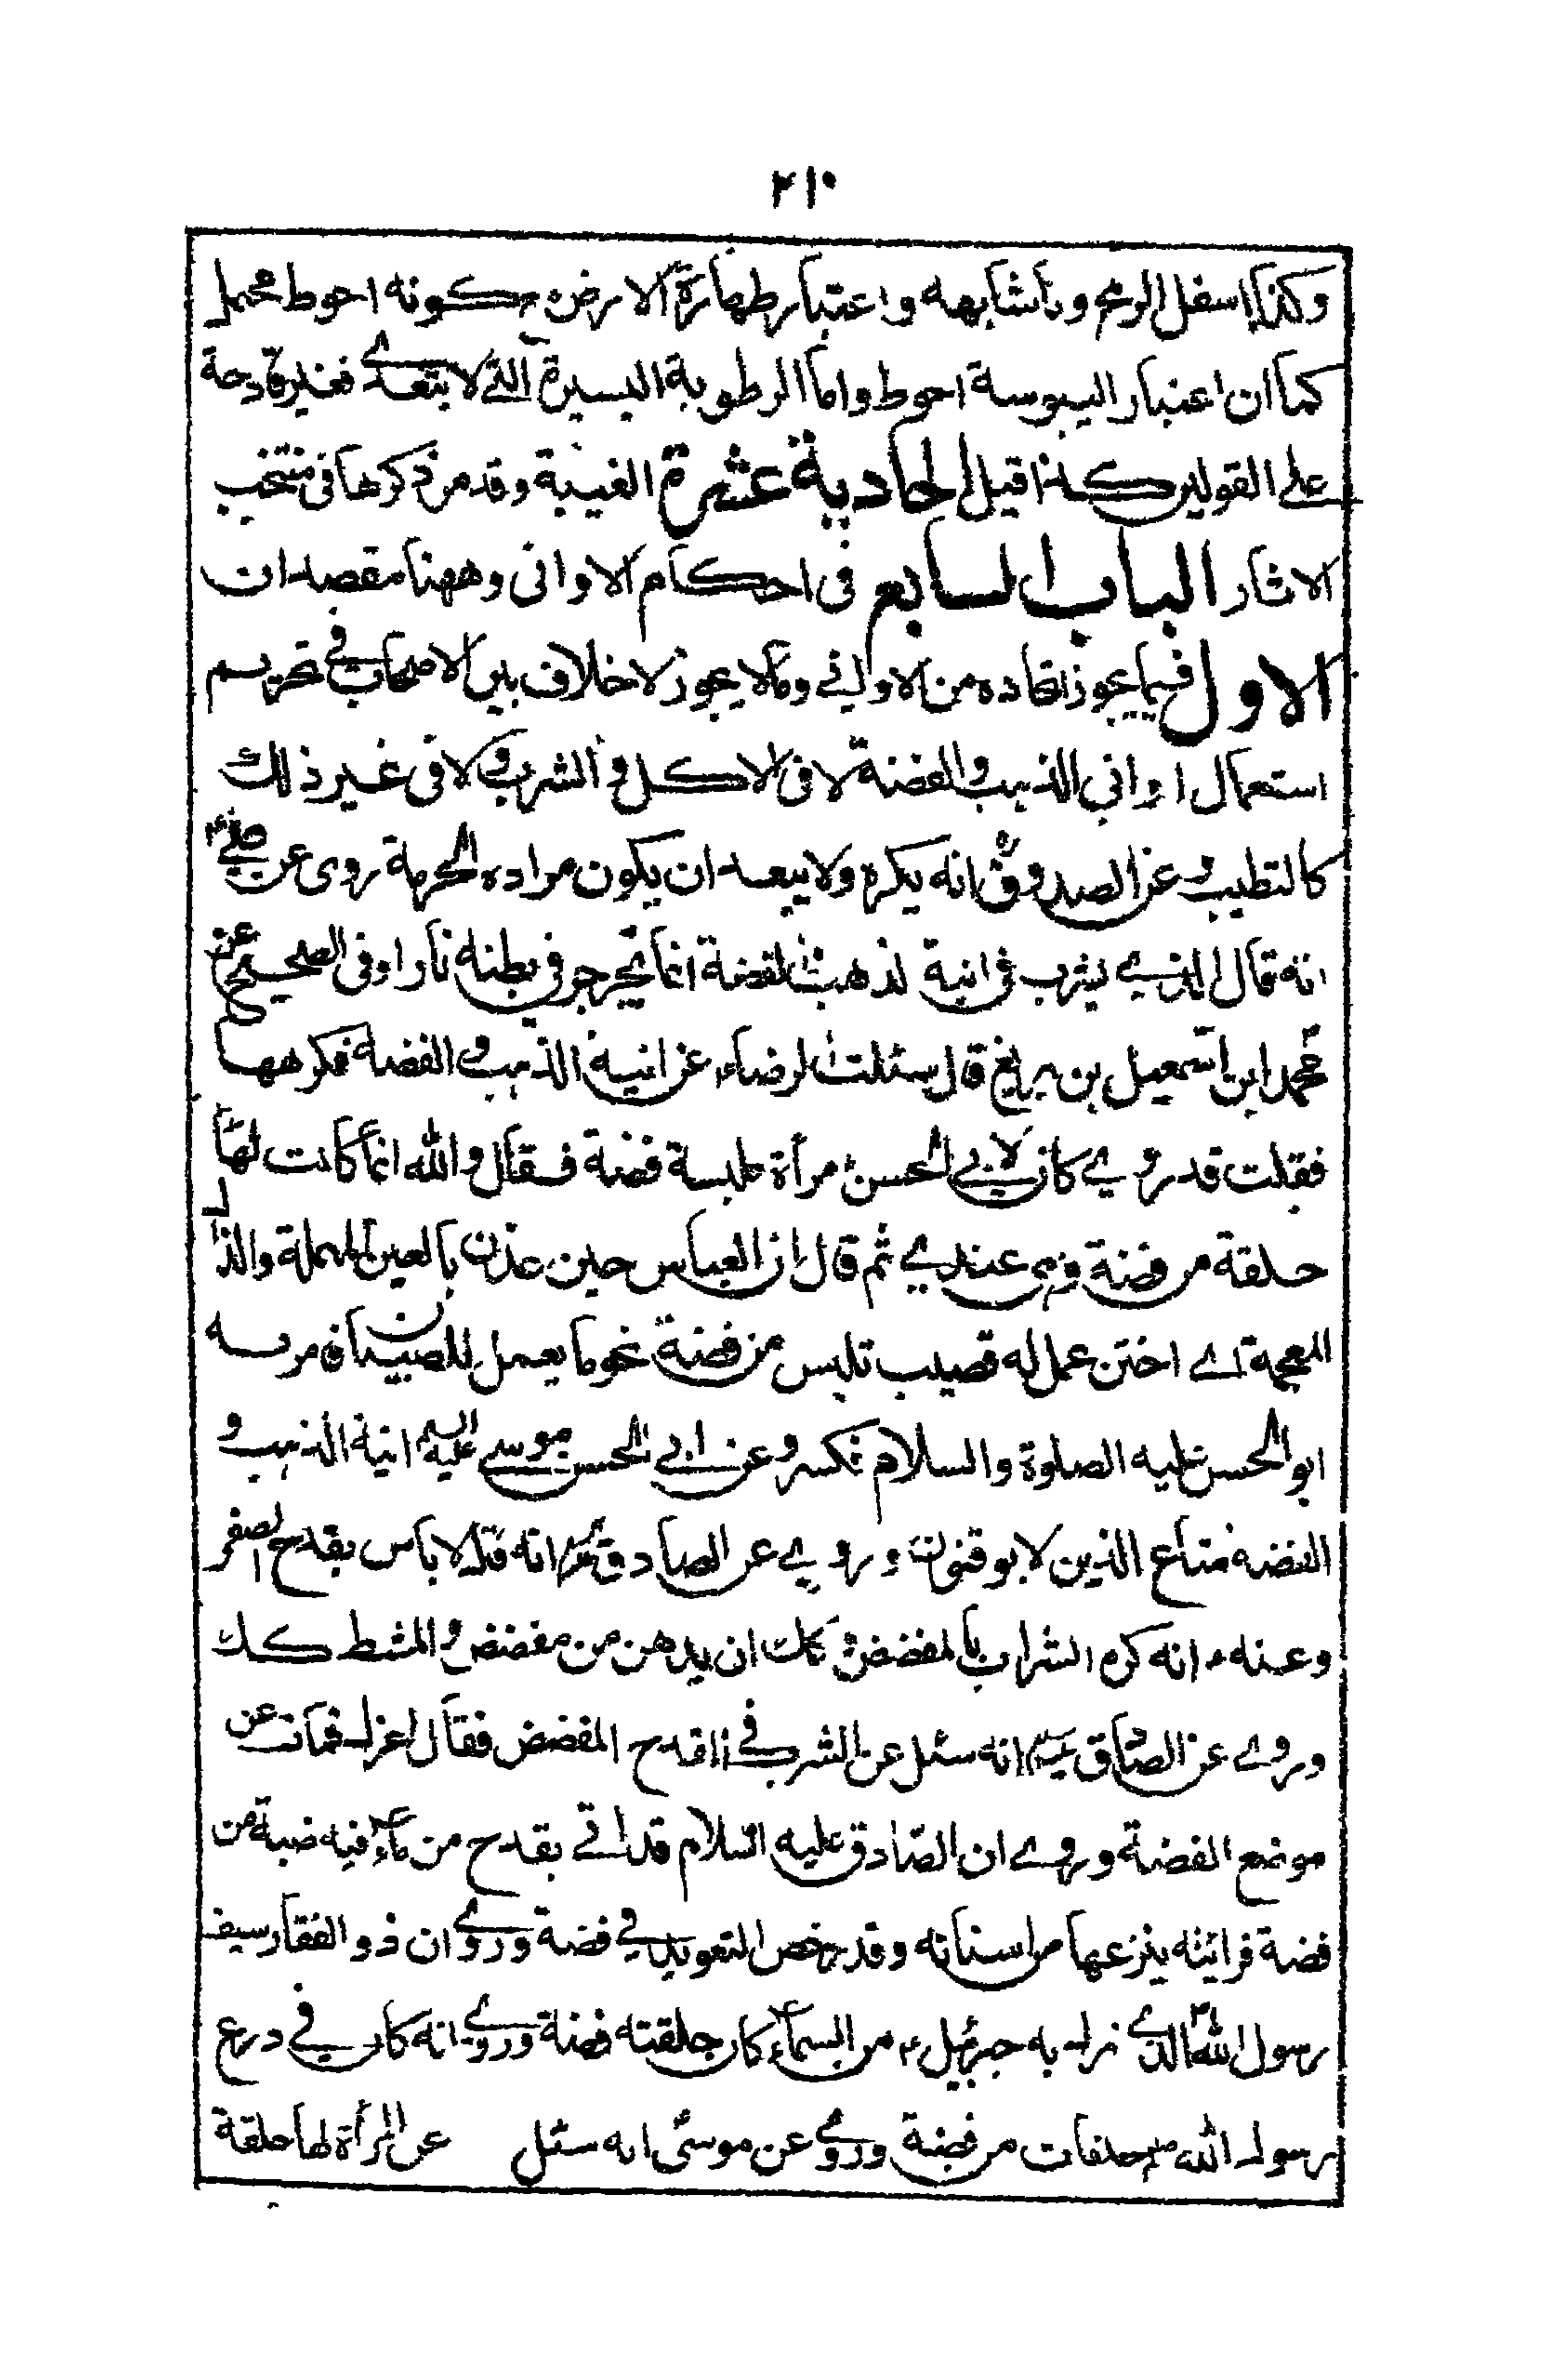 ٢١٠
وكذا اسفل الرمح وما شابهه واعتبار طهارة الارض كونه احوط محمل
كما ان اعتبار اليبوسة احوط واما الرطوبة اليسيرة التي لا يتعدے فغير قادحة
على القولين كذا قيل الحادية عشرة الغيبة وقد مر ذكرها فى منتخب
الاثار الباب السابع فى احكام الاوانى وههنا مقصدان
الاول فيما يجوز اتخاذه من الاوانے وما لا يجوز لا خلاف بين الاصحاب فے تحريم
استعمال اوانى الذهب والفضة لا فى الاكل والشرب ولا فى غير ذلك
كالتطيب وعن الصدوق انه يكره ولا يبعد ان يكون مراده الحرمة روى عن علے
انه قال الذے يشرب فى انية الذهب والفضة انما يجرجر فى بطنه نارا وفى الصحيح عن
محمد ابن اسمعيل بن بزيغ قال سئلت الرضاء عن انية الذهب والفضة فكرهها
فقلت قد روے كان لابى الحسن مرأة ملبسة فضة فقال والله انما كانت لها
حلقة من فضة وهى عندے ثم قال ان العباس حين عذن بالعين المهملة والذال
المعجمة اے اختن عمل له قصيب تلبس من فضة نحو ما يعمل للصبيان فامر به
ابو الحسن عليه الصلوة والسلام فكسر وعن ابى الحسن موسے عليه السلم انية الذهب و
الفضه متاع الذين لا يوقنون وروے عن الصادق انه قال لا باس بقدح الصفر
وعنه انه كره الشراب بالمفضض وكك ان يدهن من مفضض والمشط كك
وروے عن الصادق انه سئل عن الشرب فے القدح المفضض فقال اعزل فمك عن
موضع الفضة وروے ان الصادق عليه السلام قد اتے بقدح من ماء فيه ضبة من
فضة فرايته ينزعها من اسنانه وقد رخص التعويذ فے فضة وروے ان ذو الفقار سيف
رسول الله الذے نزل به جبرئيل من السماء كان حلقته فضة وروے انه كان فے درع
رسول الله حلقات من فضة وروے عن موسى انه سئل عن المرأة لها حلقة